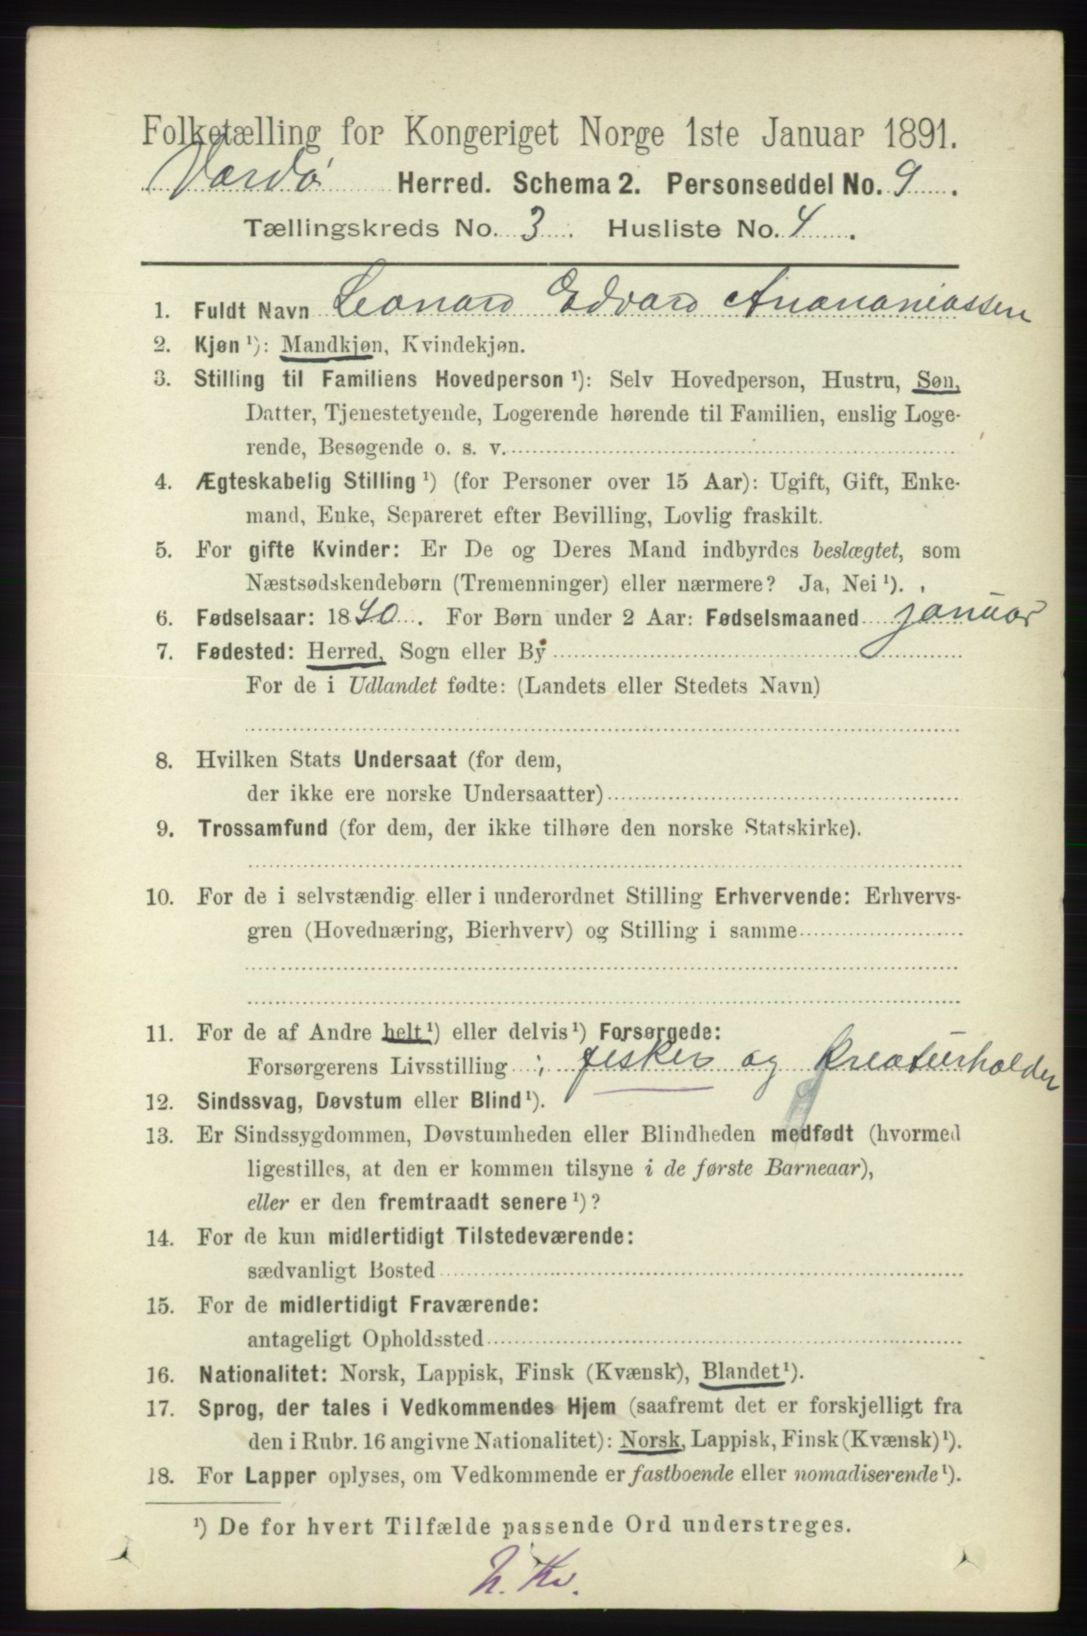 Folketælling for Kongeriget Norge 1ste Januar 1891.
Vardø Herred. Schema 2. Personseddel No. 9.
Tællingskreds No. 3. Husliste No. 4.
1. Fuldt Navn Leonard Edvard Ananiassen
2. Kjøn ¹): Mandkjøn, Kvindekjøn.
3. Stilling til Familiens Hovedperson ¹): Selv Hovedperson, Hustru, Søn,
Datter, Tjenestetyende, Logerende hørende til Familien, enslig Loge-
rende, Besøgende o. s. v.
4. Ægteskabelig Stilling ¹) (for Personer over 15 Aar): Ugift, Gift, Enke-
mand, Enke, Separeret efter Bevilling, Lovlig fraskilt.
5. For gifte Kvinder: Er De og Deres Mand indbyrdes beslægtet, som
Næstsødskendebørn (Tremenninger) eller nærmere? Ja, Nei ¹).
6. Fødselsaar: 1890. For Børn under 2 Aar: Fødselsmaaned januar
7. Fødested: Herred, Sogn eller By
For de i Udlandet fødte: (Landets eller Stedets Navn)
8. Hvilken Stats Undersaat (for dem,
der ikke ere norske Undersaatter)
9. Trossamfund (for dem, der ikke tilhøre den norske Statskirke).
10. For de i selvstændig eller i underordnet Stilling Erhvervende: Erhvervs-
gren (Hovednæring, Bierhverv) og Stilling i samme
11. For de af Andre helt ¹) eller delvis ¹) Forsørgede:
Forsørgerens Livsstilling : fisker og kreaturholder
12. Sindssvag, Døvstum eller Blind ¹).
13. Er Sindssygdommen, Døvstumheden eller Blindheden medfødt (hvormed
ligestilles, at den er kommen tilsyne i de første Barneaar),
eller er den fremtraadt senere ¹)?
14. For de kun midlertidigt Tilstedeværende:
sædvanligt Bosted
15. For de midlertidigt Fraværende:
antageligt Opholdssted
16. Nationalitet: Norsk, Lappisk, Finsk (Kvænsk), Blandet ¹).
17. Sprog, der tales i Vedkommendes Hjem (saafremt det er forskjelligt fra
den i Rubr. 16 angivne Nationalitet): Norsk, Lappisk, Finsk (Kvænsk) ¹).
18. For Lapper oplyses, om Vedkommende er fastboende eller nomadiserende ¹).
¹) De for hvert Tilfælde passende Ord understreges.
N. Kv.